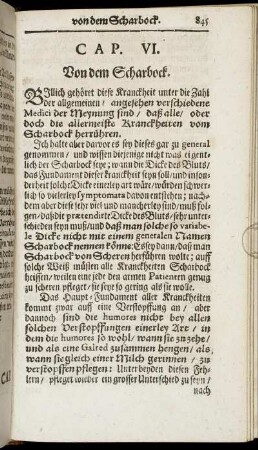 von dem Scharbock. 845
CAP. VI.
Von dem Scharbock.
BIllich gehöret diese Kranckheit unter die Zahl
der allgemeinen / angesehen verschiedene
Medici der Meynung sind / daß alle / oder
doch die allermeiste Kranckheiten vom
Scharbock herrühren.
Ich halte aber darvor es sey dieses gar zu general
genommen / und wissen diejenige nicht was eigent-
lich der Scharbock seye; wann die Dicke des Bluts /
das Fundament dieser kranckheit seyn soll / und inson-
derheit solche Dicke einerley art wäre / würden schwer-
lich so vielerley symptomata davon entstehen; nach-
dem aber diese sehr viel und mancherley sind / muß fol-
gen / daß die prætendirte Dicke des Bluts / sehr unter-
schieden seyn muß / und daß man solche so variable-
le Dicke nicht mit einem generalen Namen
Scharbock nennen könne: Es sey dann / daß man
Scharbock von Scheren herführen wolte; auff
solche Weiß müsten alle Kranckheiten Scharbock
heissen / weilen eine jede den armen Patienten genug
zu scheren pfleget / sie seye so gering als sie wolle.
Das Haupt-Fundament aller Kranckheiten
kommt zwar auff eine Verstopffung an / aber
dannoch sind die humores nicht bey allen
solchen Verstopffungen einerley Art / in
dem die humores so wohl / wann sie zu zehe /
und als eine Galred zusammen hengen / als
wann sie gleich einer Milch gerinnen / zu
verstopffen pflegen: Unter beyden diesen Feh-
lern / pfleget wieder ein grosser Unterschied zu seyn /
nach